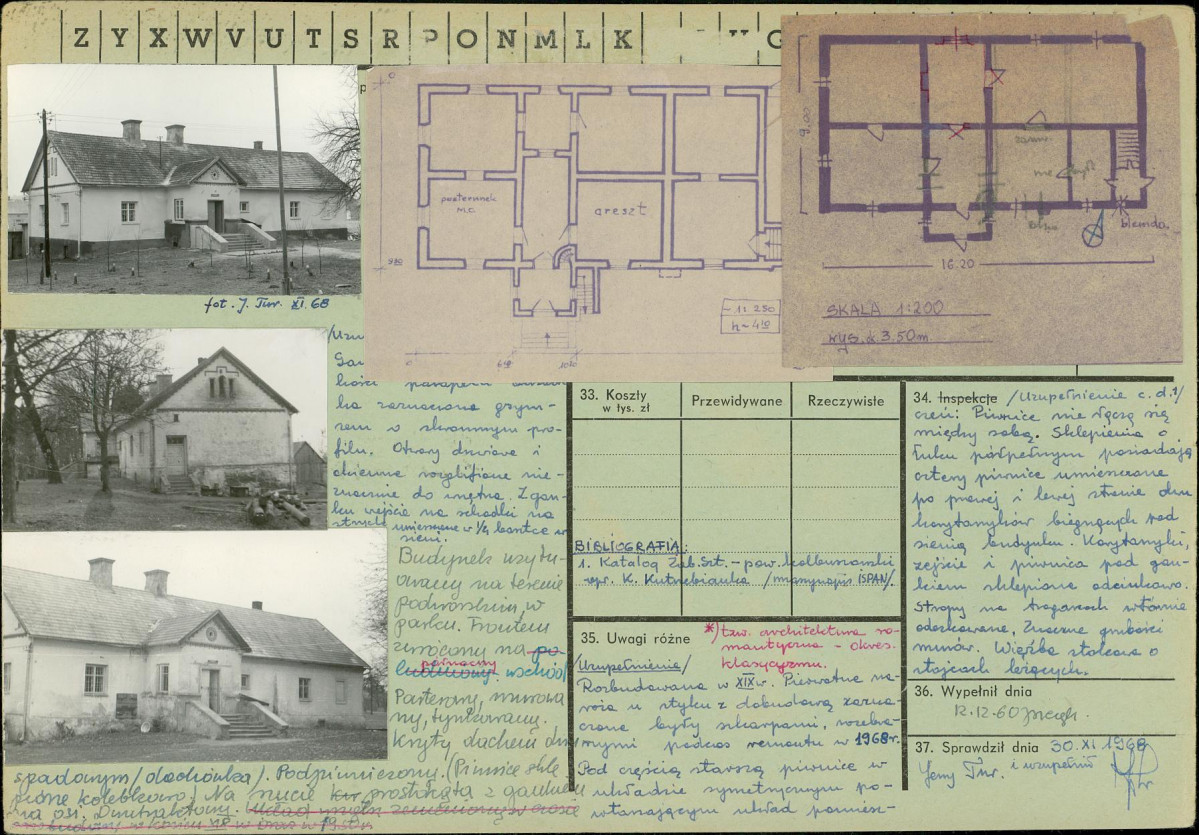 Z Y X W V U T S R P O N M L K G
fot. J. Tur. XI. 68
posterunek
M.O.
areszt
~ 1:250
h ~ 4
9,00
zamu.
blenda
16.20
SKALA 1:200
wys. ok. 3.50m
ka zaznaczona gzym-
sem o skromnym pro-
filu. Otwory drzwiowe i
okienne rozglifione nie-
znacznie do wnętrza. Z gan-
ku wejście na schodki na
strych umieszczone w 1/4 w
sieni.
Budynek usytu-
owany na terenie
podworskim, w
parku. Frontem
zwrócony na po-
północny wschód
Parterowy, murowa
ny, tynkowany.
Kryty dachem dwu
spadowym /dachówka/. Podpiwniczony. (Piwnice skle
pione kolebkowo. Na rzucie prostokąta z gankiem
na osi. Dwutraktowy. Układ wnętrz
33. Koszty
w tys. zł
Przewidywane
Rzeczywiste
BIBLIOGRAFIA:
1. Katalog Zab. Szt. - pow. kolbuszowski
opr. K. Kutrzebianka /manuskrypt ISPAN/.
35. Uwagi różne
*) tzw. architektura ro-
mantyczna - okres.
klasycyzmu.
/Uzupełnienia/
Rozbudowana w XIX w. Pierwotne na-
roża u styku z dobudową zazna-
czone były szkarpami, rozebra-
nymi podczas remontu w 1968 r.
Pod częścią starszą piwnice w
układzie symetrycznym po-
wtarzającym układ pomiesz-
34. Inspekcje /Uzupełnienie c.d./
czeń: Piwnice nie łączą się
między sobą. Sklepienia o
łuku półpełnym posiadają
cztery piwnice umieszczone
po prawej i lewej stronie dwu
korytarzyków biegnących pod
sienią budynku. Korytarzyki,
zejście i piwnica pod gan-
kiem sklepione odcinkowo.
Stropy na tragarzach wtórnie
odeskowane, znaczne grubości
murów. Więźba stolcowa o
stojcach leżących.
36. Wypełnił dnia
12.12.60
37. Sprawdził dnia 30. XI 1968
Jerzy Tur. i uzupełnił